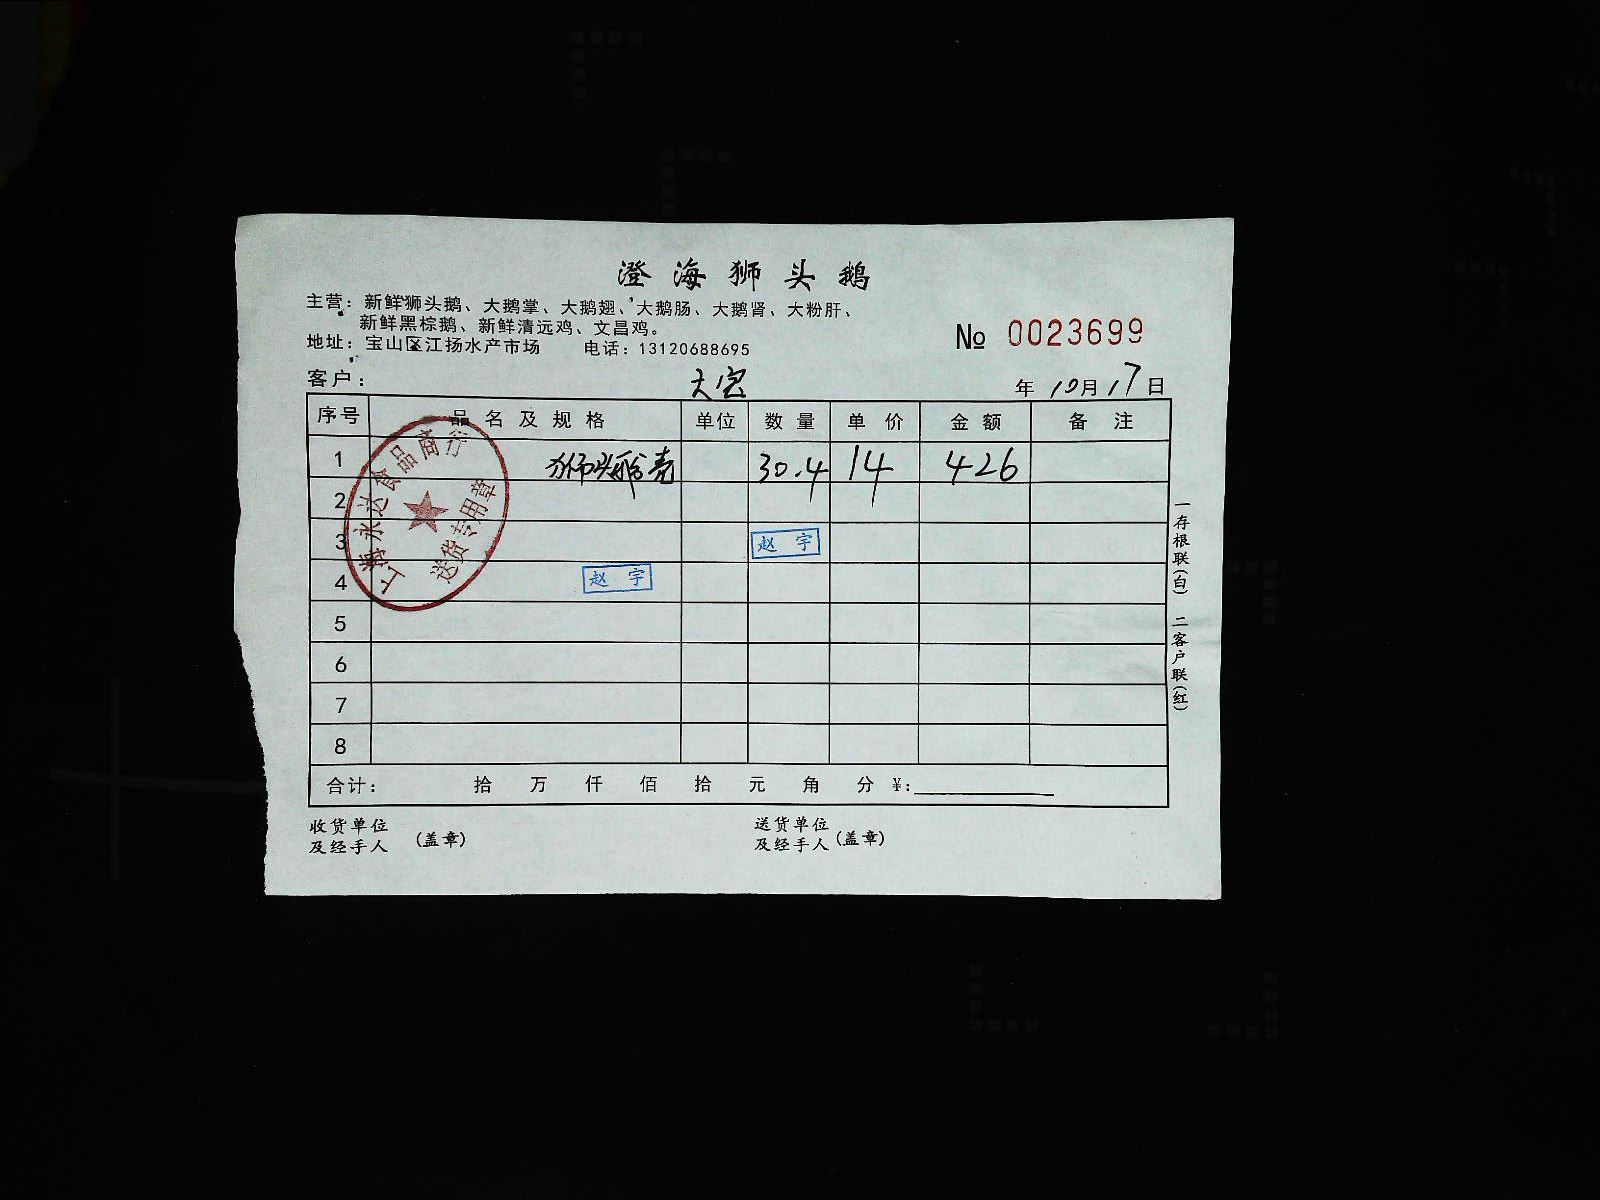 澄海狮头鹅
主营：新鲜狮头鹅、大鹅掌、大鹅翅、大鹅肠、大鹅肾、大粉肝、
新鲜黑棕鹅、新鲜清远鸡、文昌鸡。
地址：宝山区江扬水产市场 电话：13120688695
№ 0023699
客户： 大宏 年 10月17日
序号 品名及规格 单位 数量 单价 金额 备注
1 狮头鹅壳 30.4 14 426
2
3 赵宇
4 赵宇
5
6
7
8
上海永达食品商行
送货专用章
合计： 拾 万 仟 佰 拾 元 角 分 ¥：
收货单位
及经手人 （盖章）
送货单位
及经手人（盖章）
一存根联（白） 二客户联（红）